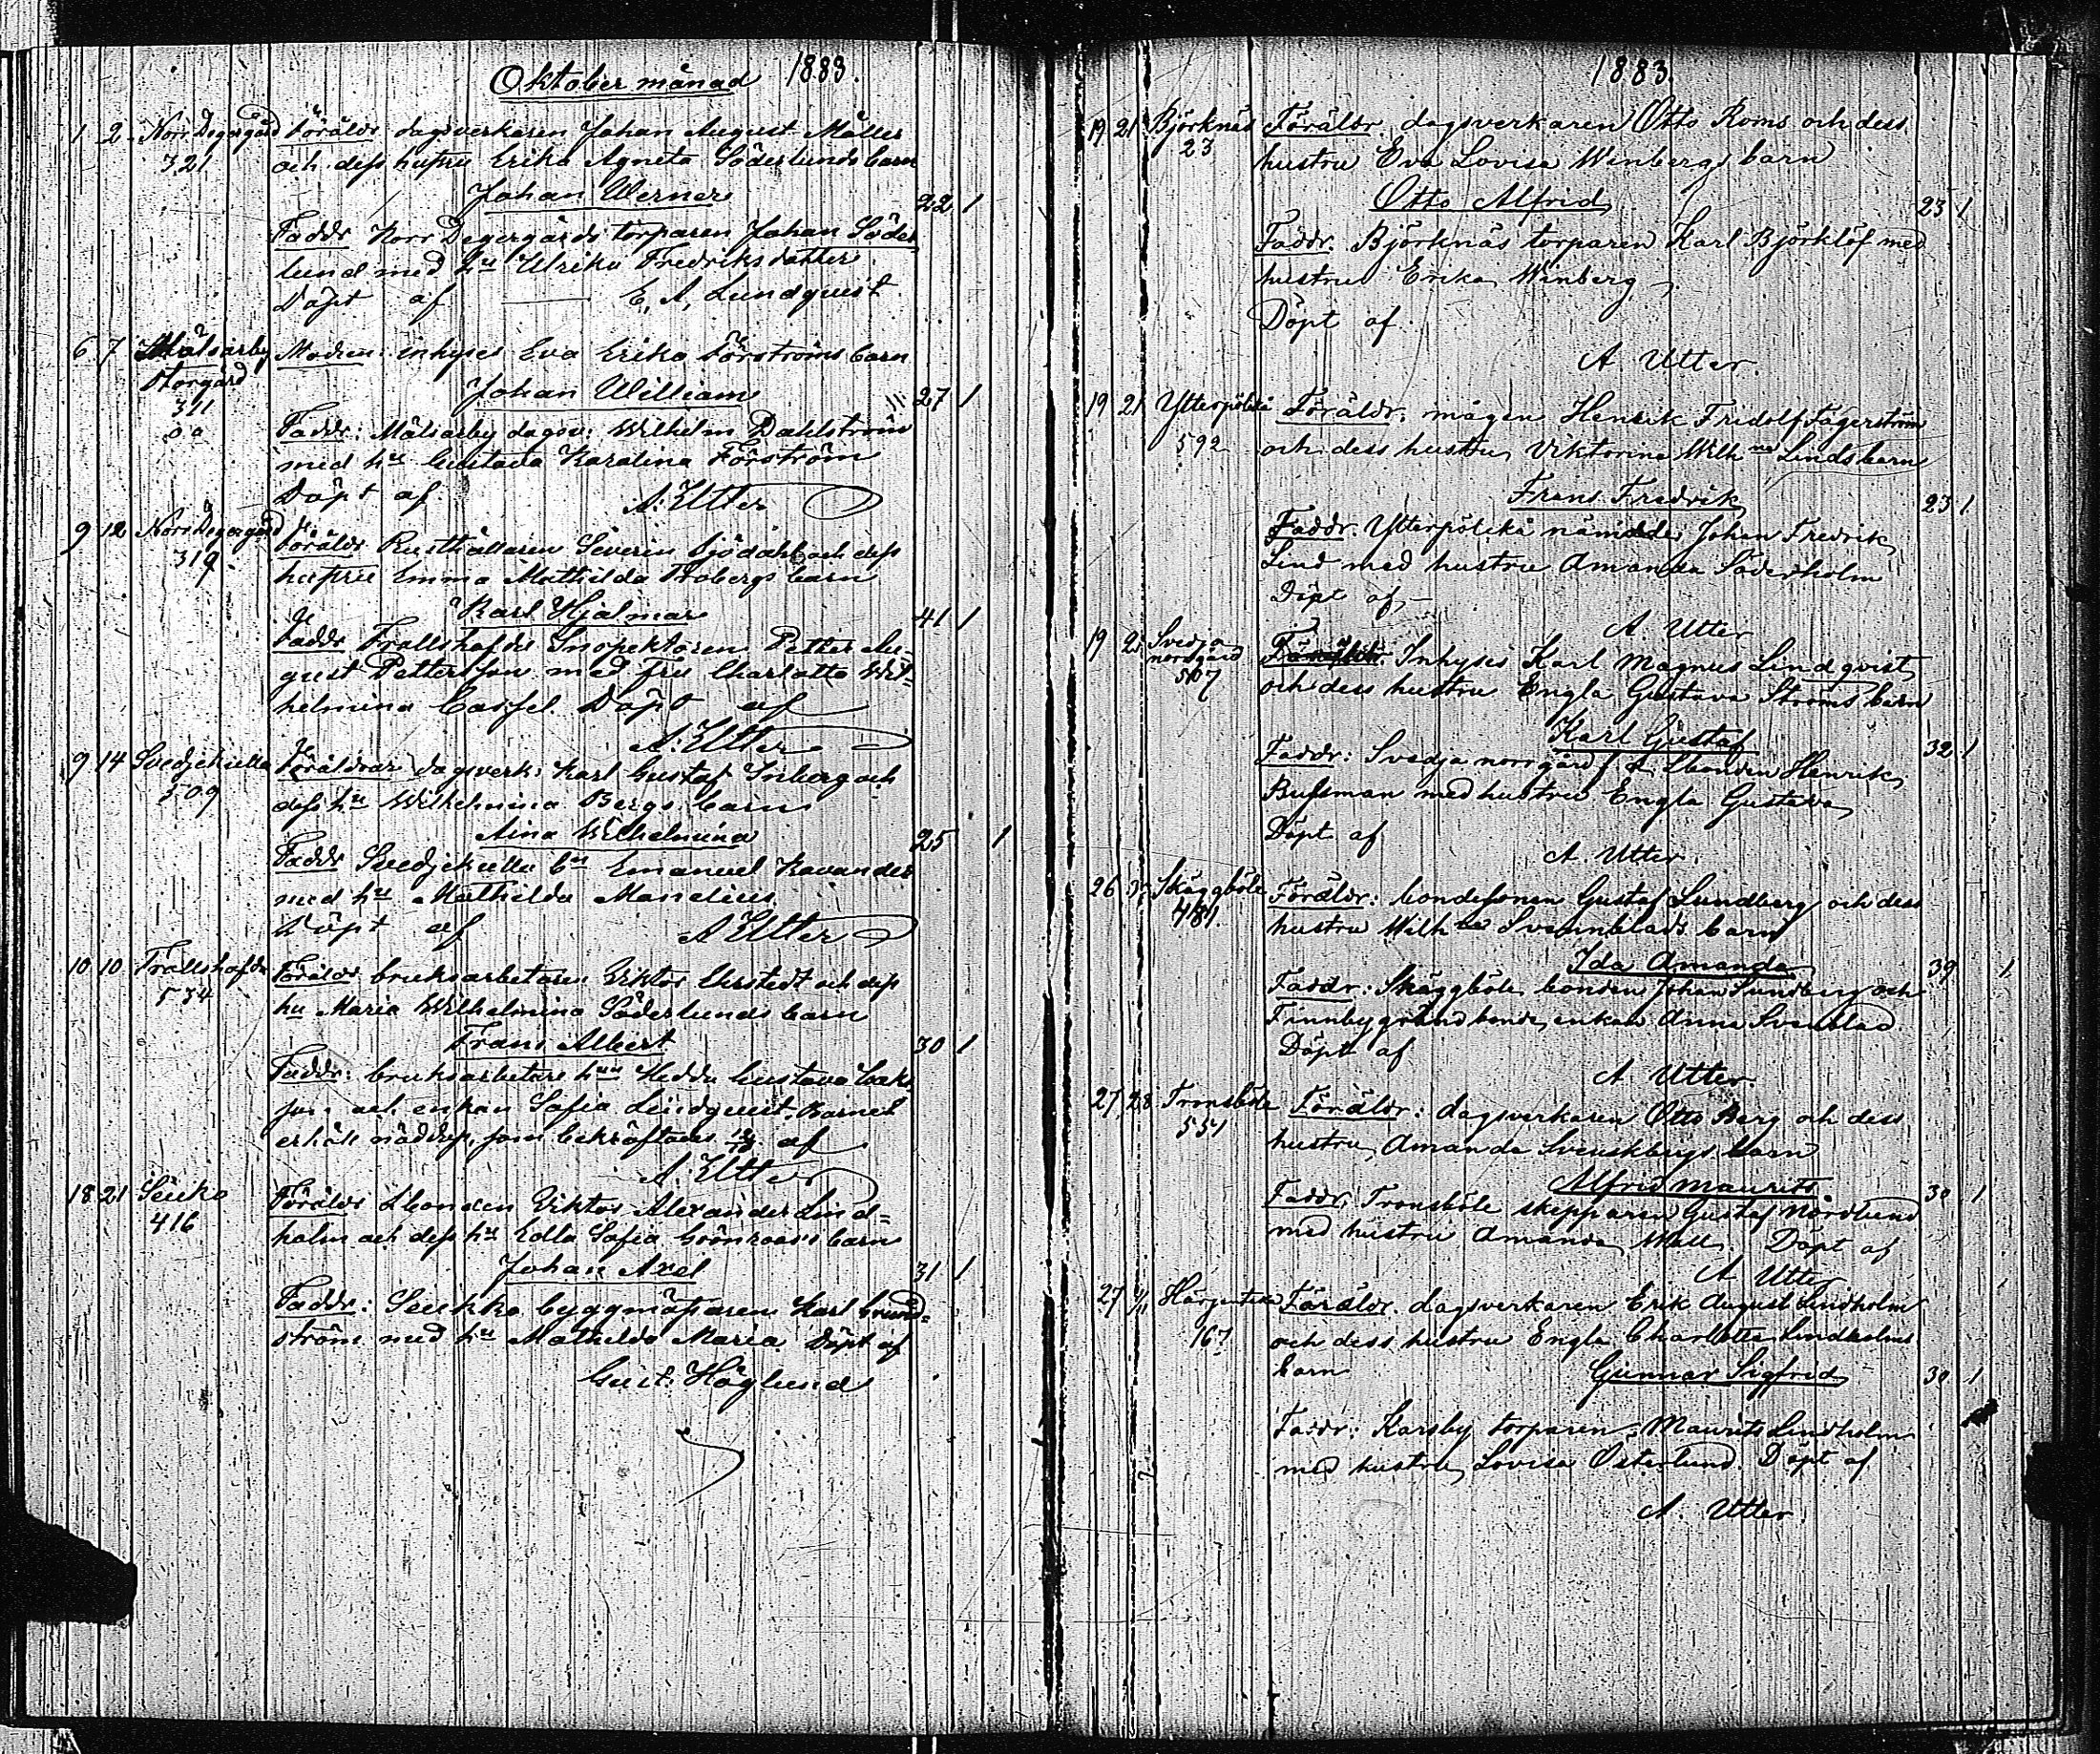 Oktober månad 1883.
1 2 Norr Degergård Föräldr dagsverkaren Johan August Möller
321 och dess hustru Erika Agneta Söderlunds barn
Johan Werner 22 1
Faddr Norr Degergårds torparen Johan Söder
lund med hu Ulrika Fredriksdotter
Döpt af E. A. Lundqvist
6 7 Målsarby Modren: inhyses Eva Erika Förströms barn
Storgård
Johan William 27 1
311
o. ä Faddr: Målsarby dagsv: Wilhelm Dahlström
med hu Gustava Karolina Förström
Döpt af A. Utter
9 12 Norr Degergård Föräldr Rusthållaren Severin Sjödahl och dess
319 hustru Emma Mathilda Frobergs barn
Karl Hjalmar 41 1
Faddr Trollshofda Inspektoren Petter Au-
gust Pettersson med fru Charlotta Wil-
helmina Cassel. Döpt af
A. Utter
9 14 Svedjekulla Föräldrar dagsverk: Karl Gustaf Friberg och
509 dess hu Wilhelmina Bergs barn
Aina Wilhelmina 25 1
Faddr Svedjekulla bn Emanuel Kavander
med hu Mathilda Mandelius
Döpt af A Utter
10 10 Trollshofda Föräldr bruksarbetaren Viktor Öhrstedt och dess
534 hu Maria Wilhelmina Söderlunds barn
Frans Albert 30 1
Faddr: bruksarbetare hun Hedda Gustava Isaks
son och enkan Sofia Lindqvist. Barnet
erhöll nöddop, som bekräftades af
A. Utter
18 21 Seuko Föräldr Lbonden Viktor Alexander Lind=
416 holm och dess hu Edla Sofia Grönroos's barn
Johan Axel 31 1
Faddr: Seukko byggmästaren Karl Grund=
ström med hu Mathilda Maria Döpt af
Gust. Höglund
1883.
19 21 Björknäs Föräldr. dagsverkaren Otto Roms och dess
23 hustru Eva Lovisa Winbergs barn
Otto Alfrid 23 1
Faddr. Björknäs torparen Karl Björklöf med
hustru Erika Winberg
Döpt af
A Utter.
19 21 Ytterpölikä Föräldr. mågen Henrik Fridolf Fagerström
592 och dess hustru Viktorina Wilhna Linds barn
Frans Fredrik 23 1
Faddr. Ytterpölikä nämnde Johan Fredrik
Lind med hustru Amanda Söderholm
Döpt af
A. Utter
19 21 Svedja Inhyses Karl Magnus Lindqvist
norrgård
507 och dess hustru Engla Gustava Ströms barn
Karl Gustaf 32 1
Faddr: Svedja norrgård f d. Lbonden Henrik
Bussman med hustru Engla Gustava
Döpt af
A. Utter.
26 Skäggböle Föräldr: bondesonen Gustaf Sundberg och dess
481. hustru Wilhna Svennblads barn
Ida Amanda 39 1
Faddr: Skäggböle bonden Johan Sundberg och
Finnby gränd bonde enkan Anna Svenblad
Döpt af
A Utter.
27 28 Tronsböle Föräldr: dagsverkaren Otto Berg och dess
551 hustru Amanda Svenskbergs barn
Alfrid Maurits 30 1
Faddr: Tronsböle skepparen Gustaf Nordlund
med hustru Amanda Wall. Döpt af
A Utter
27 Härpentika Föräldr. dagsverkaren Erik August Lindholm
167 och dess hustru Engla Charlotta Lindholms
barn Gunnar Sigfrid 30 1
Faddr: Karsby torparen Maurits Lindholm
med hustru Lovisa Österlund. Döpt af
A. Utter.